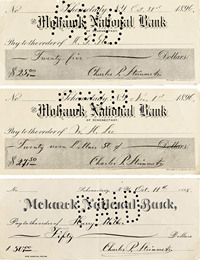 Schenectady, N.Y. Oct. 31st 1896
The Mohawk National Bank
Pay to the order of
Twenty five Dollars
$25.00 Charles P. Steinmetz
Schenectady, N.Y. Nov. 1st 1896
The Mohawk National Bank
OF SCHENECTADY
Pay to the order of
Twenty seven Dollars 50
$27.50 Charles P. Steinmetz
Schenectady, N.Y. Oct. 11th
Mohawk National Bank,
Pay to the order of
Fifty Dollars
Charles P. Steinmetz